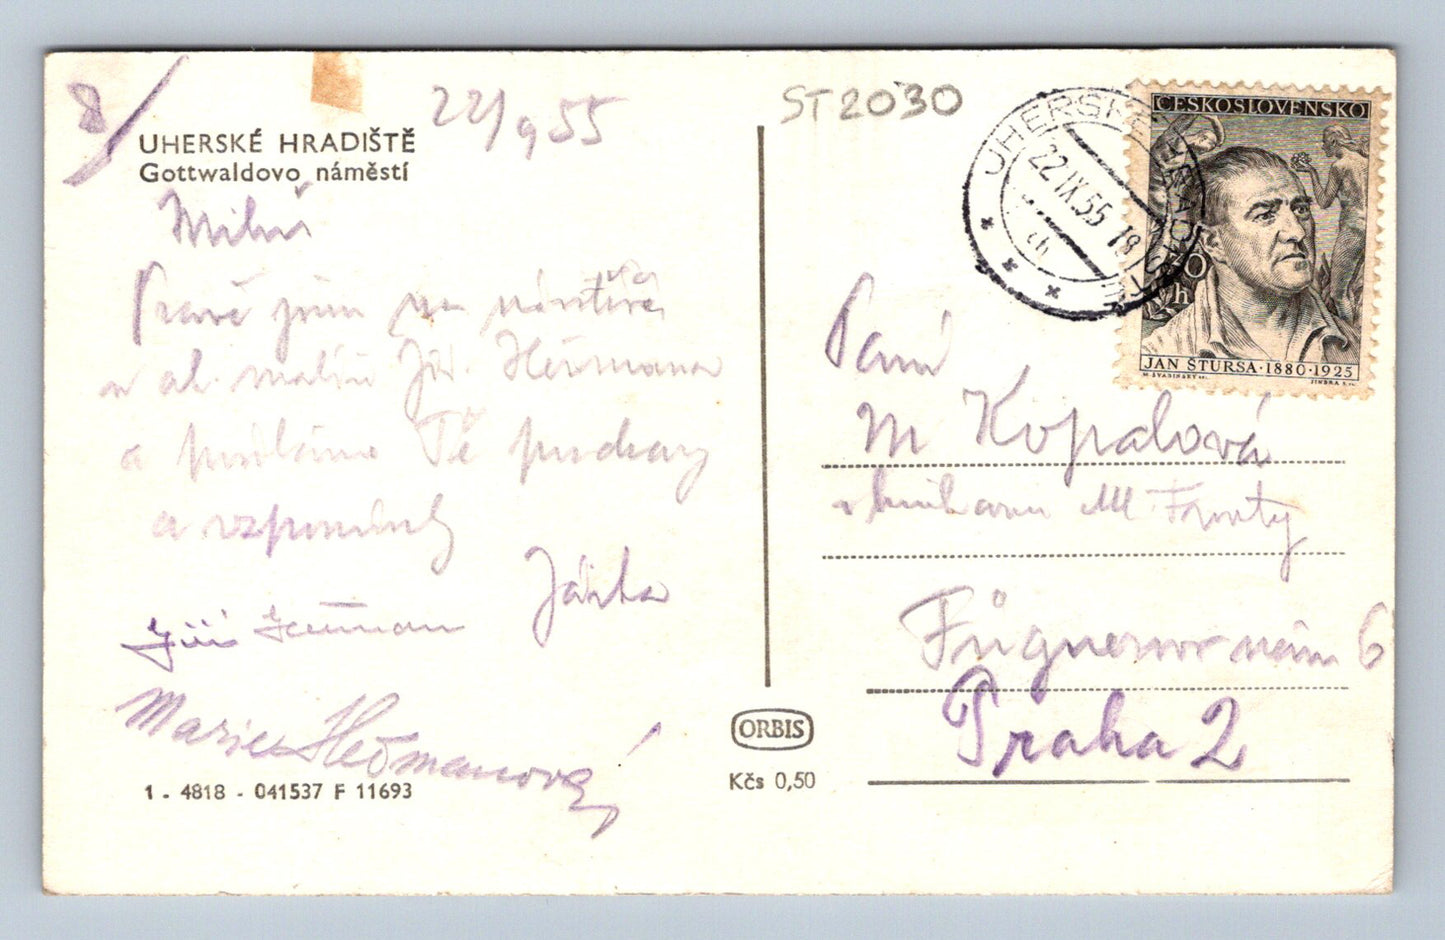 8/
22/9 55
ST2030
UHERSKÉ HRADIŠTĚ
Gottwaldovo náměstí
Právě jsem na návštěvě
u ak. malíře Jiř. Heřmana
a posíláme Tě pozdravy
a vzpomínky
Jarka
Jiří Heřman
Marie Heřmanová
1 - 4818 - 041537 F 11693
ORBIS
Kčs 0,50
UHERSKÉ HRADIŠTĚ
22.IX.55 18
ch
ČESKOSLOVENSKO
30
h
JAN ŠTURSA·1880·1925
M. ŠVABINSKÝ
JINDRA
Paní
M Kopalová
Fügnerovo nám 6
Praha 2